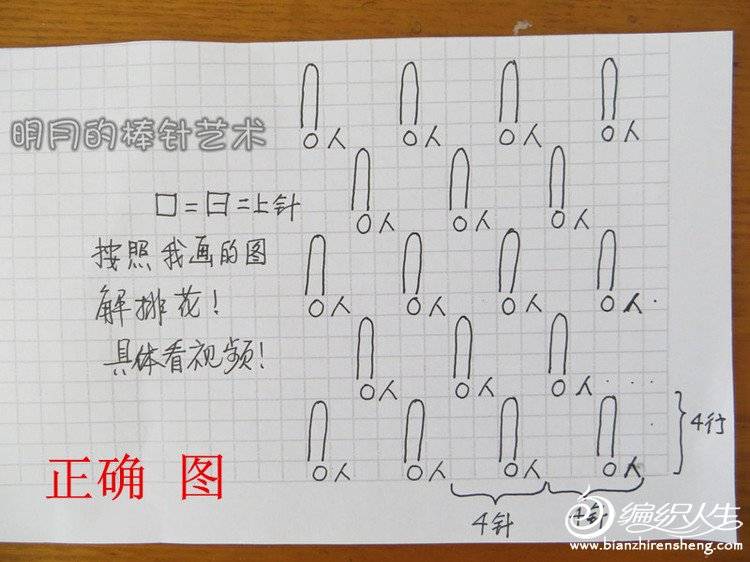 明月的棒针艺术
O人 O人 O人 O人
O人 O人 O人
□=曰=上针
按照我画的图
O人 O人 O人 O人
解排花！
具体看视频！
O人 O人 O人
4行
正确 图
O人 O人 O人 O人
4针 4针
编织人生
www.bianzhirensheng.com